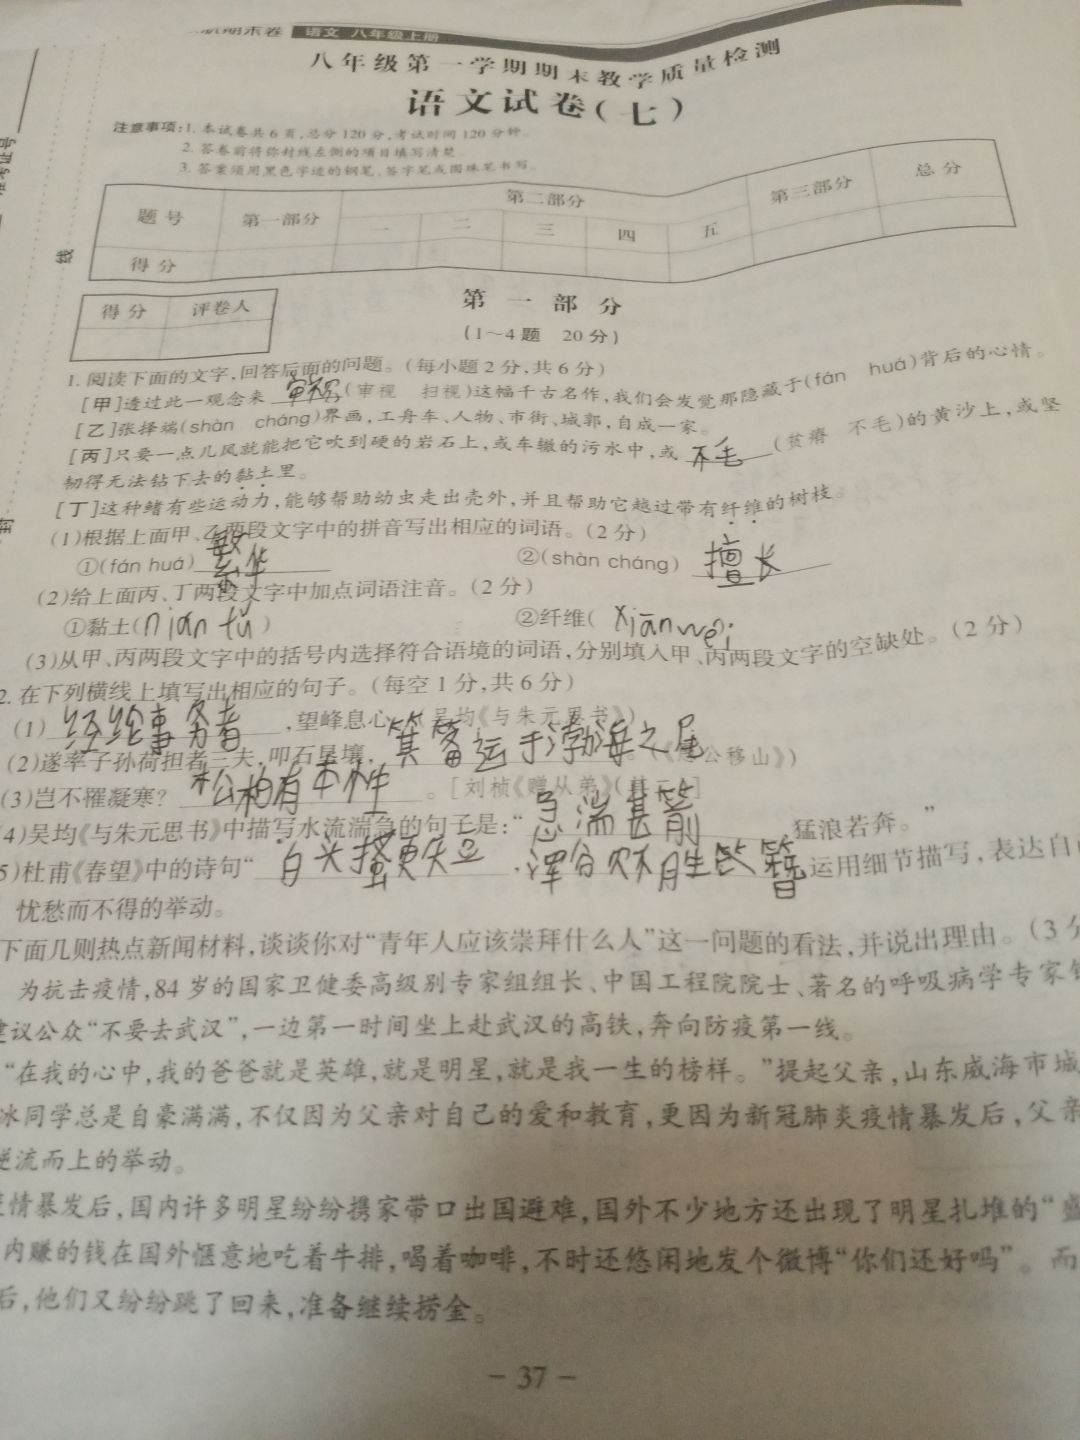 期末卷 语文 八年级上册
八年级第一学期期末教学质量检测
语文试卷(七)
注意事项:1. 本试卷共6页,总分120分,考试时间120分钟。
2. 答卷前将你封线左侧的项目填写清楚。
3. 答案须用黑色字迹的钢笔、签字笔或圆珠笔书写。
线
题号 第一部分 第二部分 第三部分 总分
一 二 三 四 五
得分
得分 评卷人
第一部分
(1~4题 20分)
1. 阅读下面的文字,回答后面的问题。(每小题2分,共6分)
[甲]透过此一观念来 审视 (审视 扫视)这幅千古名作,我们会发觉那隐藏于(fán huá)背后的心情。
[乙]张择端(shàn cháng)界画,工舟车、人物、市街、城郭,自成一家。
[丙]只要一点儿风就能把它吹到硬的岩石上,或车辙的污水中,或 不毛 (贫瘠 不毛)的黄沙上,或坚
韧得无法钻下去的黏土里。
封
[丁]这种鳍有些运动力,能够帮助幼虫走出壳外,并且帮助它越过带有纤维的树枝。
(1)根据上面甲、乙两段文字中的拼音写出相应的词语。(2分)
①(fán huá) 繁华 ②(shàn cháng) 擅长
(2)给上面丙、丁两段文字中加点词语注音。(2分)
①黏土(nián tǔ) ②纤维( xiān wéi
(3)从甲、丙两段文字中的括号内选择符合语境的词语,分别填入甲、丙两段文字的空缺处。(2分)
2. 在下列横线上填写出相应的句子。(每空1分,共6分)
(1) 经纶事务者 ,望峰息心。(吴均《与朱元思书》)
(2)遂率子孙荷担者三夫,叩石垦壤, 箕畚运于渤海之尾 。(《愚公移山》)
(3)岂不罹凝寒? 松柏有本性 。[刘桢《赠从弟》(其二)]
4)吴均《与朱元思书》中描写水流湍急的句子是:“ 急湍甚箭 猛浪若奔。”
5)杜甫《春望》中的诗句“ 白头搔更短 , 浑欲不胜簪 运用细节描写,表达自
忧愁而不得的举动。
下面几则热点新闻材料,谈谈你对“青年人应该崇拜什么人”这一问题的看法,并说出理由。(3分
为抗击疫情,84岁的国家卫健委高级别专家组组长、中国工程院院士、著名的呼吸病学专家
建议公众“不要去武汉”,一边第一时间坐上赴武汉的高铁,奔向防疫第一线。
“在我的心中,我的爸爸就是英雄,就是明星,就是我一生的榜样。”提起父亲,山东威海市城
冰同学总是自豪满满,不仅因为父亲对自己的爱和教育,更因为新冠肺炎疫情暴发后,父亲
逆流而上的举动。
情暴发后,国内许多明星纷纷携家带口出国避难,国外不少地方还出现了明星扎堆的“盛
内赚的钱在国外惬意地吃着牛排,喝着咖啡,不时还悠闲地发个微博“你们还好吗”。而
后,他们又纷纷跳了回来,准备继续捞金。
- 37 -